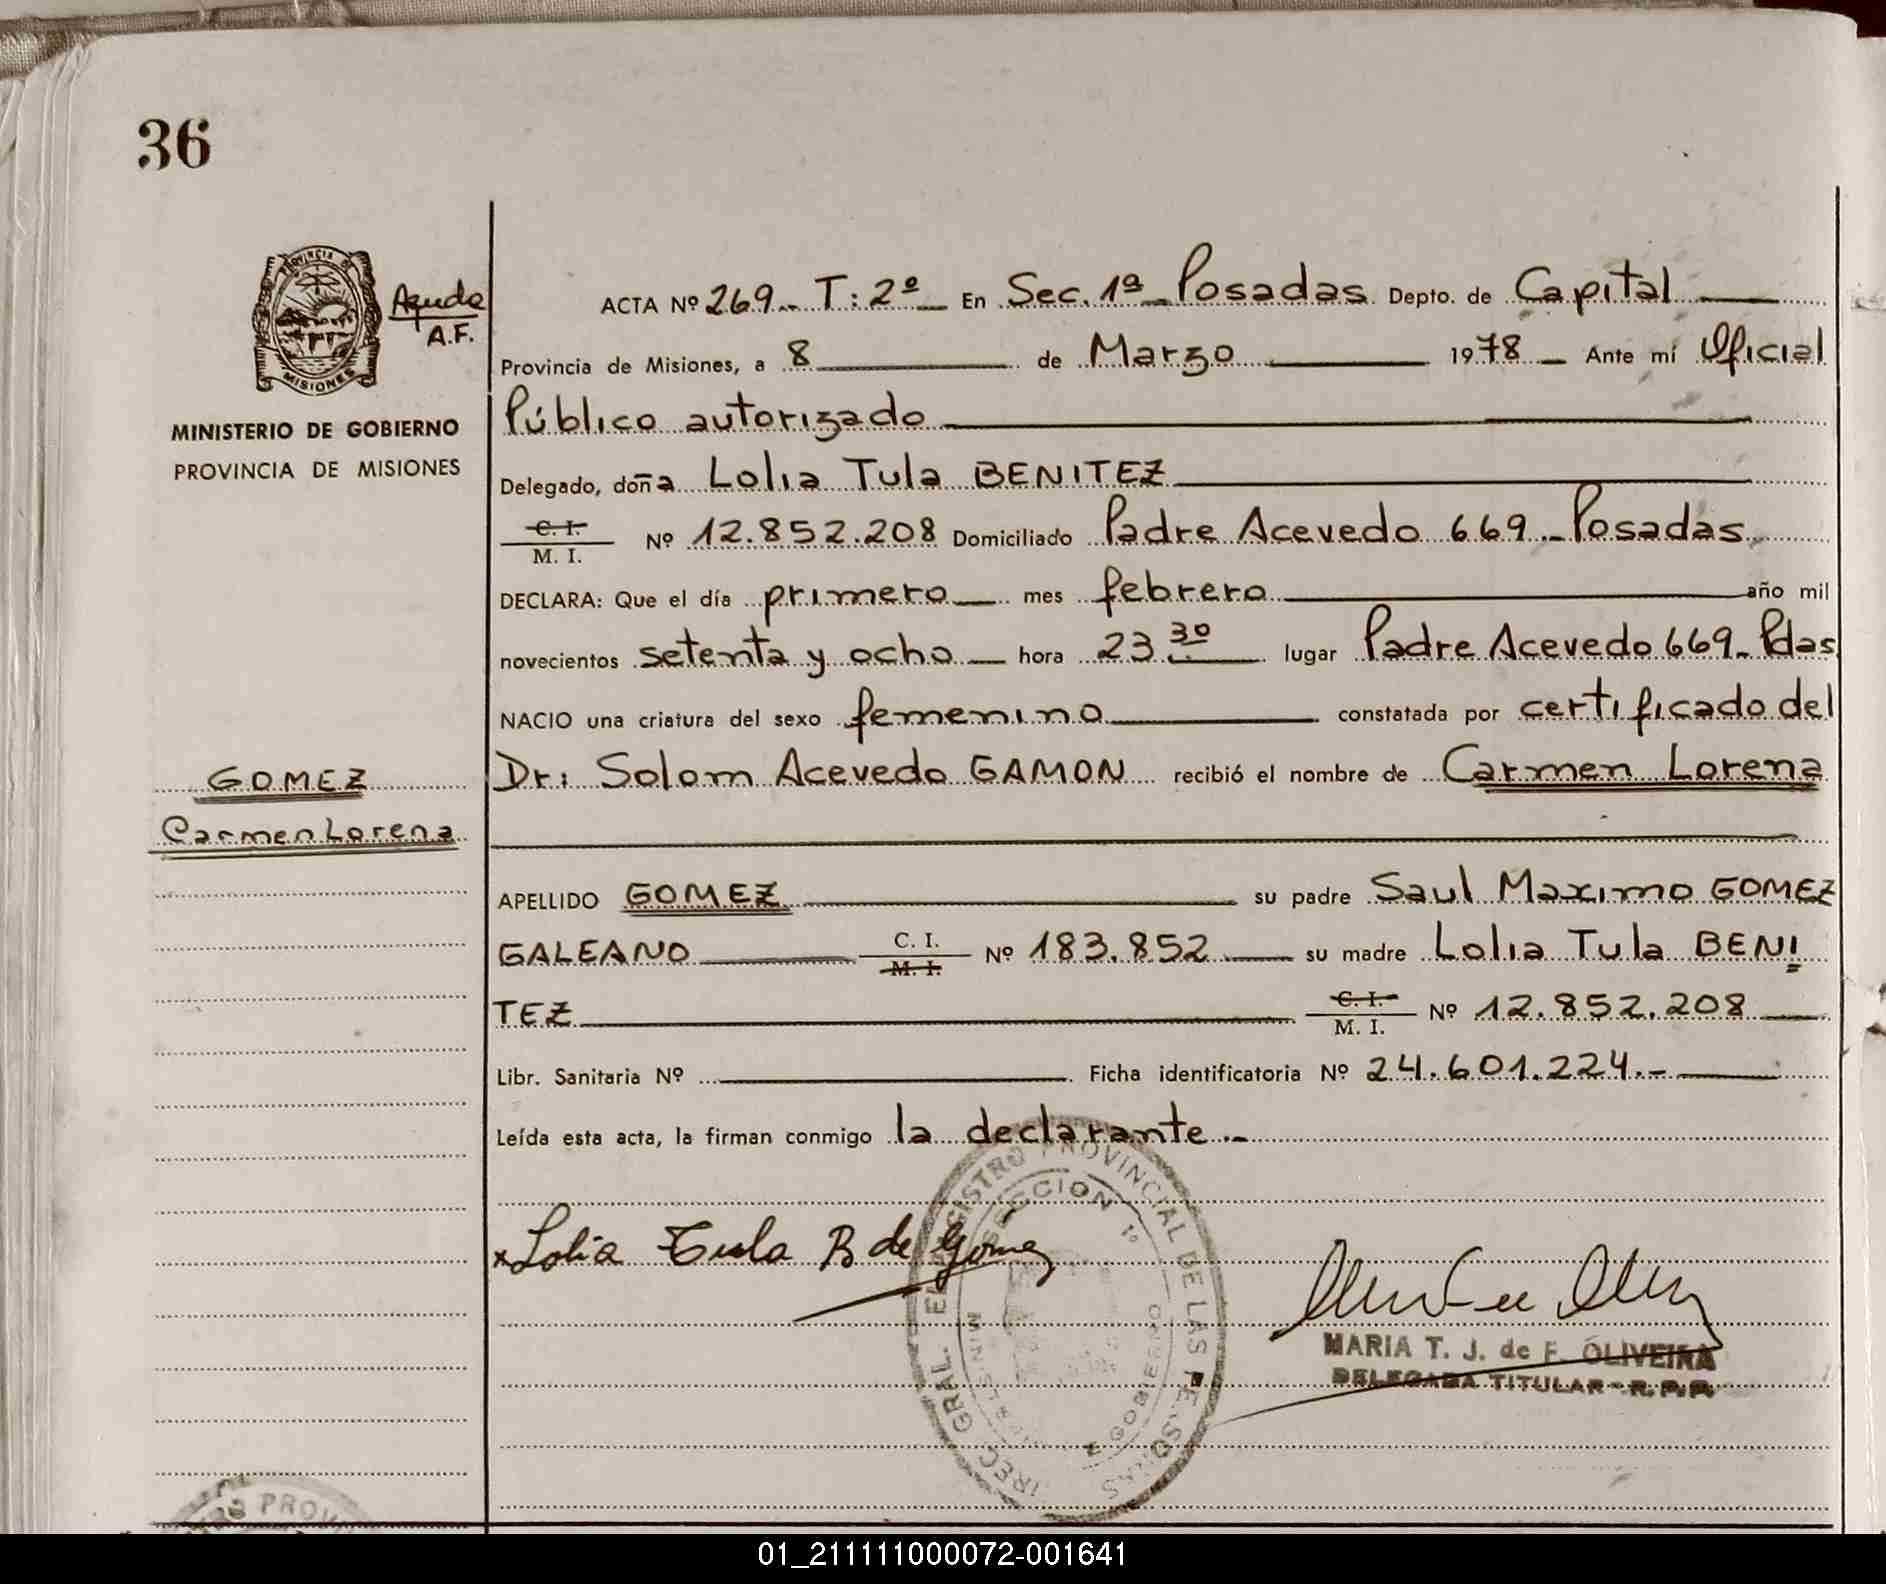 36
PROVINCIA DE
MISIONES
Ayuda
A.F.
MINISTERIO DE GOBIERNO
PROVINCIA DE MISIONES
ACTA Nº 269.. T: 2º En Sec. 1ª Posadas Depto. de Capital
Provincia de Misiones, a 8 de Marzo 1978 Ante mí Oficial
Público autorizado
Delegado, doña Lolia Tula BENITEZ
C. I. / M. I. Nº 12.852.208 Domiciliado Padre Acevedo 669.- Posadas
DECLARA: Que el día primero mes febrero año mil
novecientos setenta y ocho hora 23 30 lugar Padre Acevedo 669.- Pdas
NACIO una criatura del sexo femenino constatada por certificado del
GOMEZ
Dr: Solom Acevedo GAMON recibió el nombre de Carmen Lorena
Carmen Lorena
APELLIDO GOMEZ su padre Saul Maximo GOMEZ
GALEANO C. I. / M. I. Nº 183.852 su madre Lolia Tula BENI
TEZ C. I. / M. I. Nº 12.852.208
Libr. Sanitaria Nº Ficha identificatoria Nº 24.601.224.-
Leída esta acta, la firman conmigo la declarante.-
x Lolia Tula B de Gómez
DIREC. GRAL. REGISTRO PROVINCIAL DE LAS PERSONAS
SECCION 1º
MINISTERIO DE GOBIERNO
MARIA T. J. de F. OLIVEIRA
DELEGADA TITULAR - R.P.P.
01_211111000072-001641